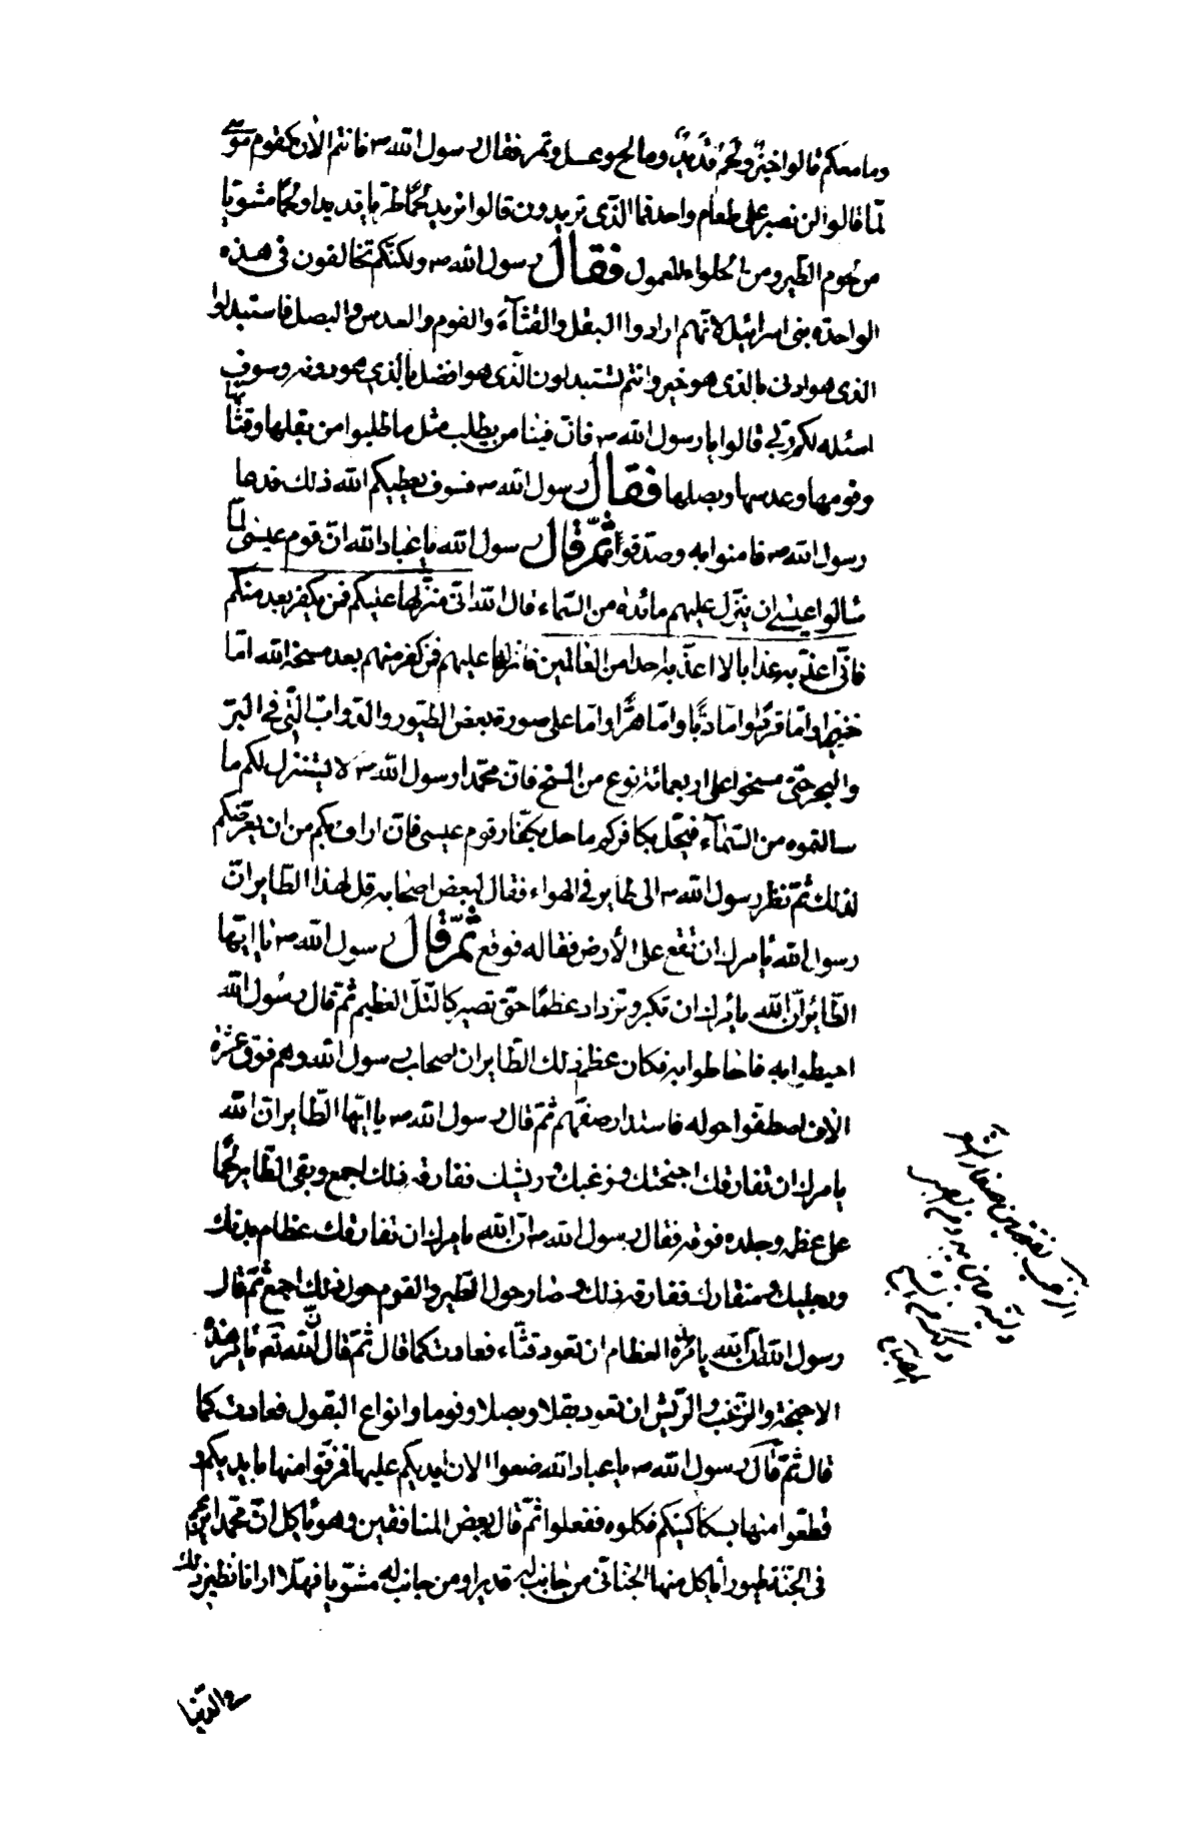 وما معكم قالوا خبز ولحم قديد ومالح وعسل وتمر فقال رسول الله ص فانتم الآن كقوم موسى
لمّا قالوا لن نصبر على طعام واحد فما الذى تريدون قالوا نريد لحما طريا قديدا ولحما مشويا
من لحوم الطير ومن الحلواء المعمول فقال رسول الله ص ولكنكم تخالفون فى هذه
الواحدة بنى اسرائيل لانهم ارادوا البقل والقثاء والفوم والعدس والبصل فاستبدلوا
الذى هو ادنى بالذى هو خير وانتم تستبدلون الذى هو افضل بالذى هو دونه وسوف
اسئله لكم ربى قالوا يا رسول الله ص فان فينا من يطلب مثل ما طلبوا من بقلها وقثائها
وفومها وعدسها وبصلها فقال رسول الله ص فسوف يعطيكم الله ذلك فدعا
رسول الله ص فامنوا به وصدقوا ثمّ قال رسول الله يا عباد الله ان قوم عيسى لمّا
سالوا عيسى ان ينزل عليهم مائدة من السماء قال الله انى منزلها عليكم فمن يكفر بعد منكم
فانى اعذبه عذابا لا اعذبه احدا من العالمين فانزلها عليهم فمن كفر منهم بعد مسخه الله امّا
خنزيرا وامّا قردا وامّا دبّا وامّا هرّا وامّا على صورة بعض الطيور والدواب التى فى البر
والبحر حتى مسخوا على اربعمائة نوع من المسخ فان محمدا رسول الله ص لا يستنزل لكم ما
سالتموه من السماء فيحل بكافركم ما حل بكفار قوم عيسى فان اراف بكم من ان يعرضكم
لذلك ثمّ نظر رسول الله ص الى طاير فى الهواء فقال لبعض اصحابه قل لهذا الطاير ان
رسول الله يامرك ان تقع على الأرض فقاله فوقع ثمّ قال رسول الله ص يا ايها
الطاير ان الله يامرك ان تكبر وتزداد عظما حتى تصير كالتل العظيم ثمّ قال رسول الله
احيطوا به فاحاطوا به فكان عظم ذلك الطاير ان اصحاب رسول الله وهم فوق عشرة
الاف اصطفوا حوله فاستدار صفهم ثمّ قال رسول الله ص يا ايها الطاير ان الله
يامرك ان تفارقك اجنحتك وزغبك وريشك ففارقه ذلك اجمع وبقى الطاير لحما
على عظم وجلده فوقه فقال رسول الله ص ان الله يامرك ان تفارقك عظام بدنك
ورجليك ومنقارك ففارقه ذلك وصار حول الطير والقوم حول ذلك اجمع ثمّ قال
رسول الله ان الله يامر هذه العظام ان تعود قثاء فعادت كما قال ثمّ قال ان الله تعه يامر هذه
الاجنحة والزغب والريش ان تعود بقلا وبصلا وفوما وانواع البقول فعادت كما
قال ثمّ قال رسول الله ص يا عباد الله ضعوا الان ايديكم عليها فمزقوا منها بايديكم و
قطعوا منها بسكاكينكم فكلوه ففعلوا ثمّ قال بعض المنافقين وهو ياكل ان محمدا يزعم
فى الجنة طيورا ياكل منها الجنانى من جانب له قديدا ومن جانب له مشويا فهلا ارانا نظير ذلك
فى الدنيا
الزغب بفتحتين صغار الشعر